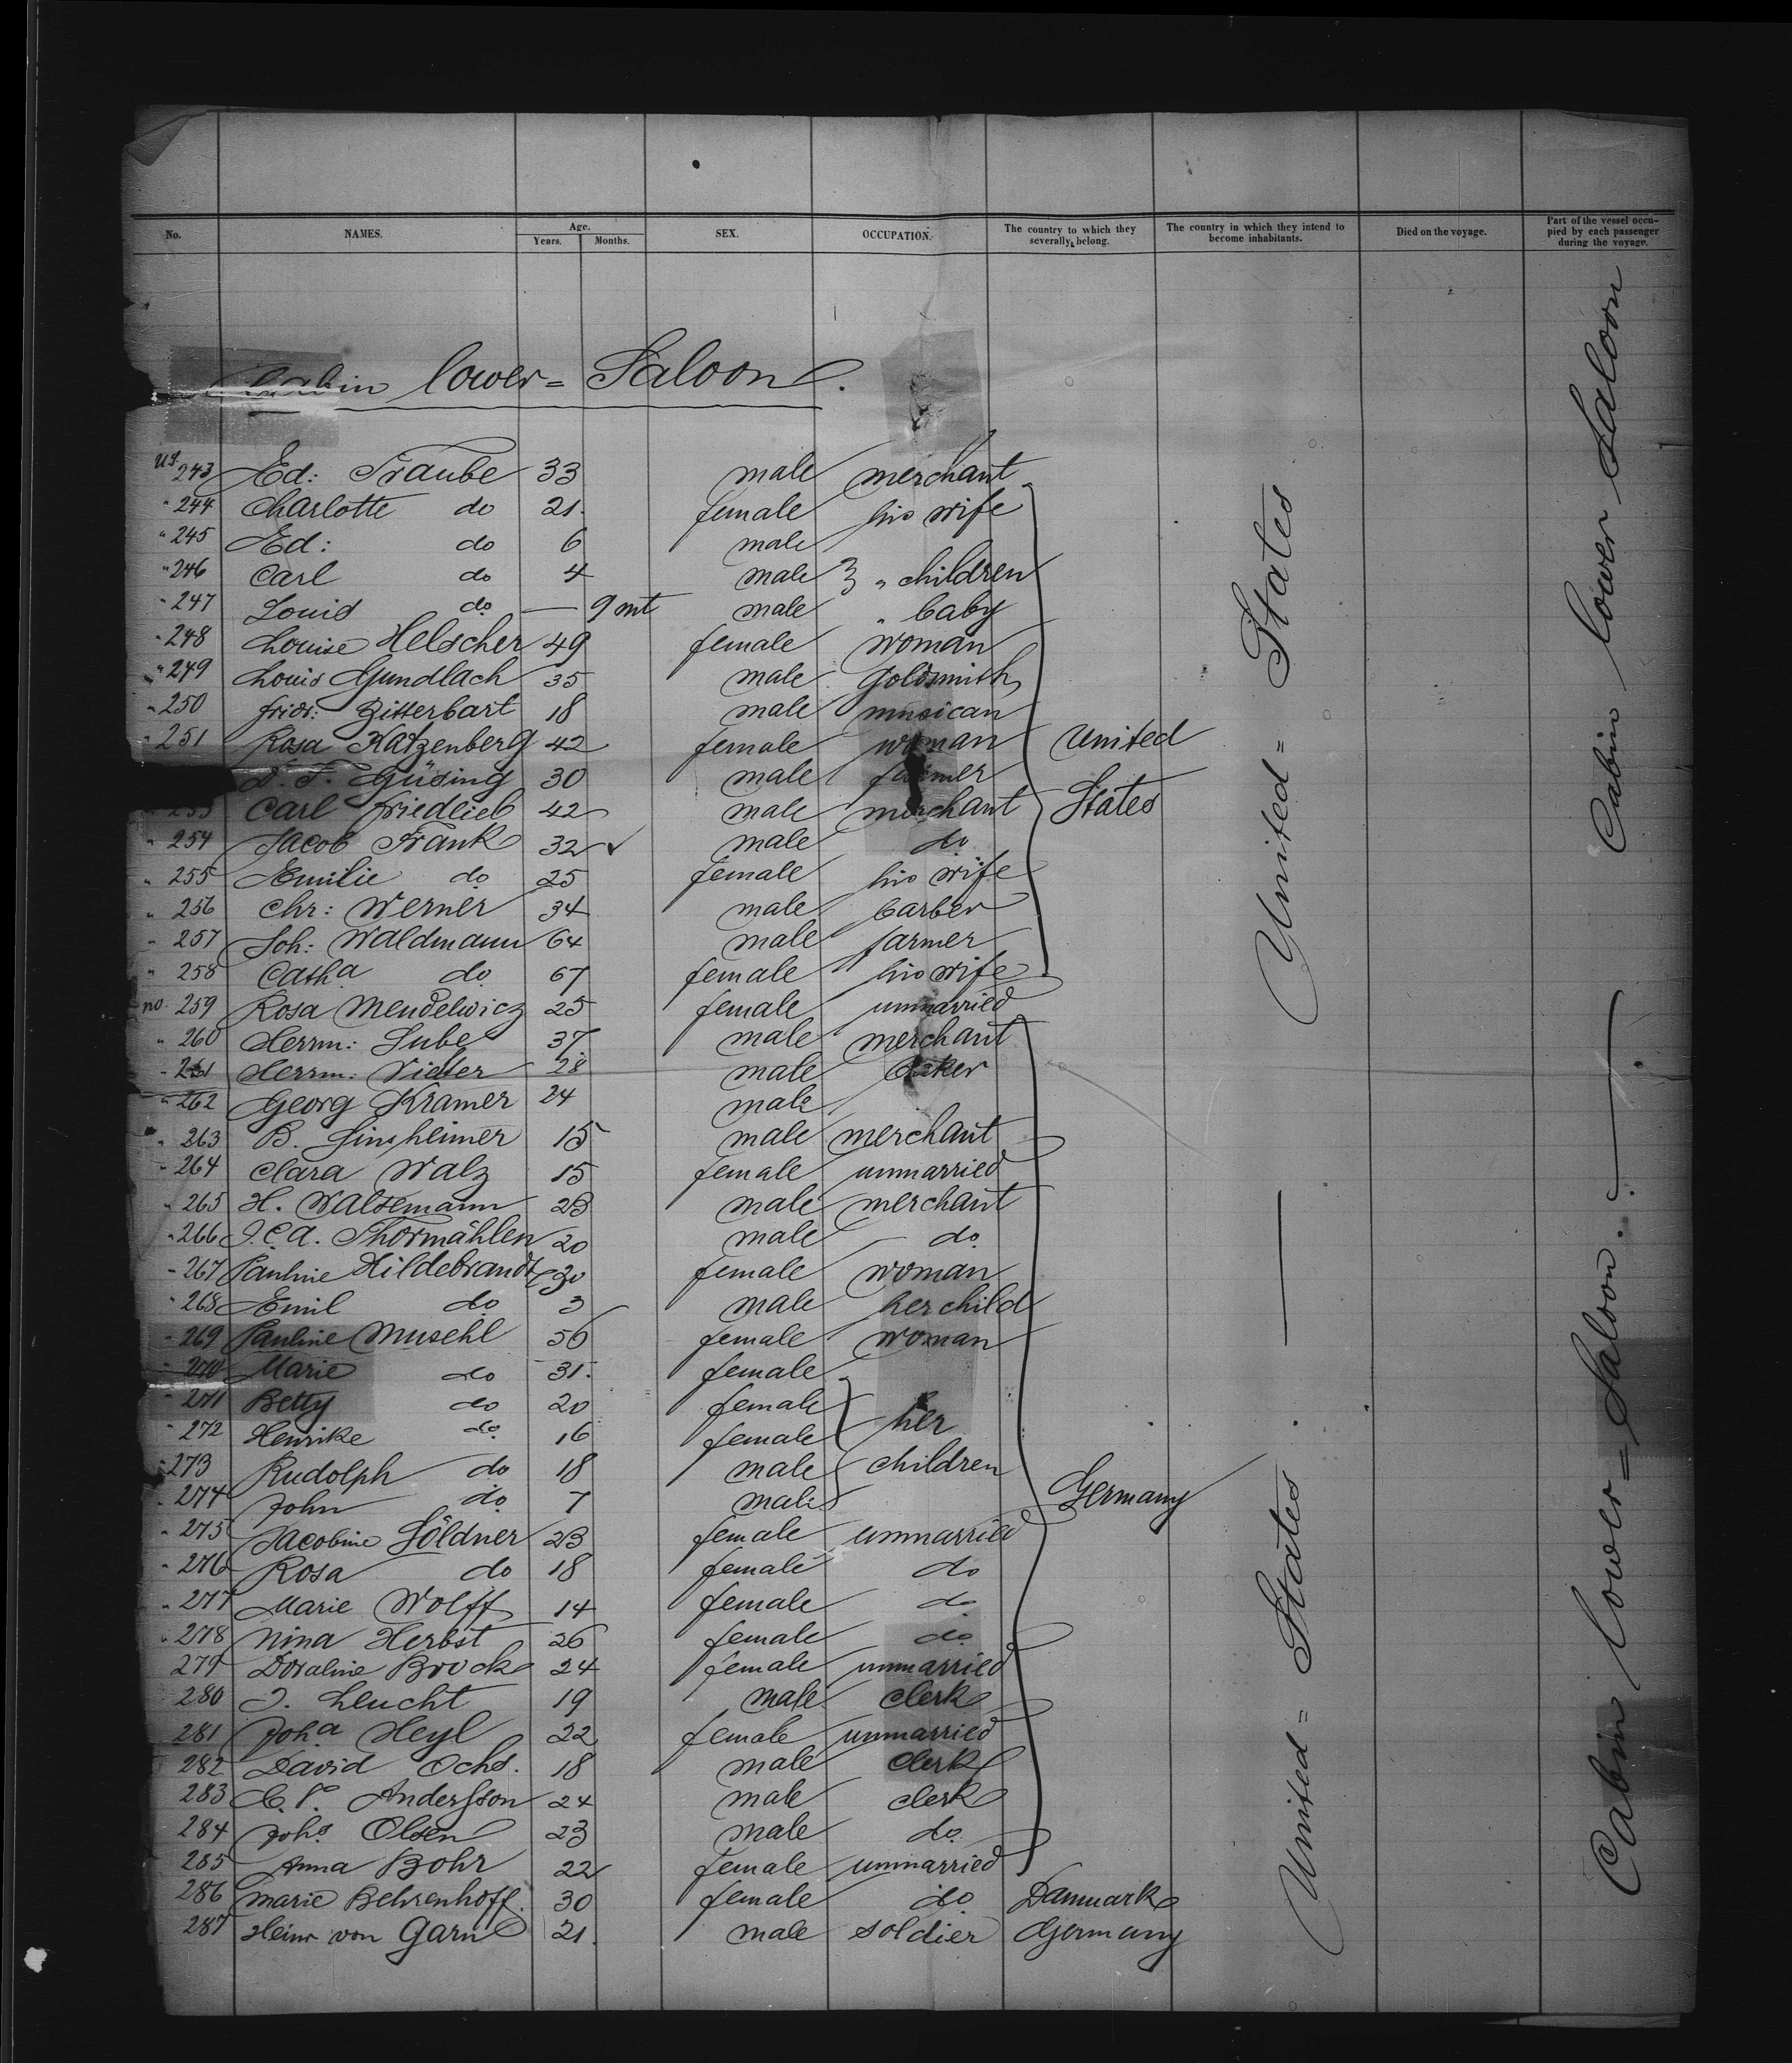 No. NAMES. Age. Years. Months. SEX. OCCUPATION. The country to which they severally belong. The country in which they intend to become inhabitants. Died on the voyage. Part of the vessel occupied by each passenger during the voyage.
Cabin lower = Saloon.
US. 243 Ed: Traube 33 male merchant
" 244 Charlotte do 21. female his wife
" 245 Ed: do 6 male
" 246 Carl do 4 male } " children
" 247 Louis do — 9 mt male " baby
" 248 Louise Helscher 49 female woman
" 249 Louis Gundlach 35 male Goldsmith
" 250 Fridr: Zitterbart 18 male musican
" 251 Rosa Katzenberg 42 female woman United
F. Güsing 30 male farmer
253 Carl Friedlieb 42 male merchant States
" 254 Jacob Frank 32 ✓ male do
" 255 Emilie do 25 female his wife
" 256 Chr: Werner 34 male barber
" 257 Joh: Waldmann 64 male farmer
" 258 Catha do 67 female his wife
no. 259 Rosa Mendelwicz 25 female unmarried
" 260 Herrm: Lube 37 male merchant
" 261 Herrm: Vieter 28 male
" 262 Georg Kramer 24 male
" 263 B. Sinsheimer 15 male merchant
" 264 Clara Walz 15 female unmarried
" 265 H. Waltemann 23 male merchant
" 266 J.C.A. Thormählen 20 male do
" 267 Pauline Hildebrandt 30 female woman
" 268 Emil do 3 male her child
" 269 Pauline Musehl 56 female woman
" 270 Marie do 31. female
" 271 Betty do 20 female
" 272 Henrike do 16 female her
" 273 Rudolph do 18 male children
" 274 John do 7 male Germany
" 275 Jacobine Söldner 23 female unmarried
" 276 Rosa do 18 female do
" 277 Marie Wolff 14 female do
" 278 Nina Herbst 26 female do
279 Doraline Brock 24 female unmarried
280 J. Leucht 19 male clerk
281 Joha Heyl 22 female unmarried
282 David Ochs. 18 male clerk
283 C. P. Andersson 24 male clerk
284 Johs Olsen 23 male do
285 Anna Bohr 22 female unmarried
286 Marie Behrenhoff. 30 female do Danmark
287 Heinr von Garn 21. male soldier Germany
United = States — United = States
Cabin lower = Saloon. — Cabin lower Saloon